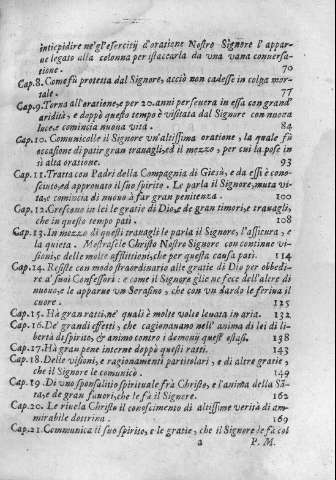 intiepidire ne'gl'esercitij d'oratione Nostro Signore l'appar-
ue legato alla colonna per istaccarla da vna vana conuersa-
tione. 70
Cap.8. Come fù protetta dal Signore, acciò non cadesse in colpa mor-
tale. 77
Cap.9. Torna all'oratione, e per 20. anni perseuera in essa con grand'
aridità, e doppò questo tempo è visitata dal Signore con nuoua
luce, e comincia nuoua vita. 84
Cap.10. Comunicolle il Signore vn'altissima oratione, la quale fù
occasione di patir gran trauagli, ed il mezzo, per cui la pose in
sì alta oratione. 93
Cap.11. Tratta con Padri della Compagnia di Giesù, e da essi è cono-
sciuto, ed approuato il suo spirito. Le parla il Signore, muta vi-
ta, e comincia di nuouo à far gran penitenza. 100
Cap.12. Crescono in lei le gratie di Dio, e de gran timori, e trauagli,
che in questo tempo patì. 108
Cap.13. In mezzo di questi trauagli le parla il Signore, l'assicura, e
la quieta. Mostrasele Christo Nostro Signore con continue vi-
sioni, e delle molte afflittioni, che per questa causa patì. 114
Cap.14. Resiste con modo straordinario alle gratie di Dio per obbedi-
re a' suoi Confessori: e come il Signore glie ne fece dell'altre di
nuouo, e le apparue vn Serafino, che con vn dardo le feriua il
cuore. 125
Cap.15. Hà gran ratti, ne' quali è molte volte leuata in aria. 132
Cap.16. De' grandi effetti, che cagionauano nell'anima di lei di li-
bertà di spirito, & animo contro i demonij quest' estasi. 138
Cap.17. Hà gran pene interne doppò questi ratti. 143
Cap.18. Delle visioni, e ragionamenti particolari, e di altre gratie,
che il Signore le comunicò. 149
Cap.19. Di vno sponsalitio spirituale frà Christo, e l'anima della Sã-
ta, e de gran fauori, che le fà il Signore. 162
Cap.20. Le riuela Christo il conoscimento di altissime verità di am-
mirabile dottrina. 169
Cap.21. Communica il suo spirito, e le gratie, che il Signore le fà col
a P. M.